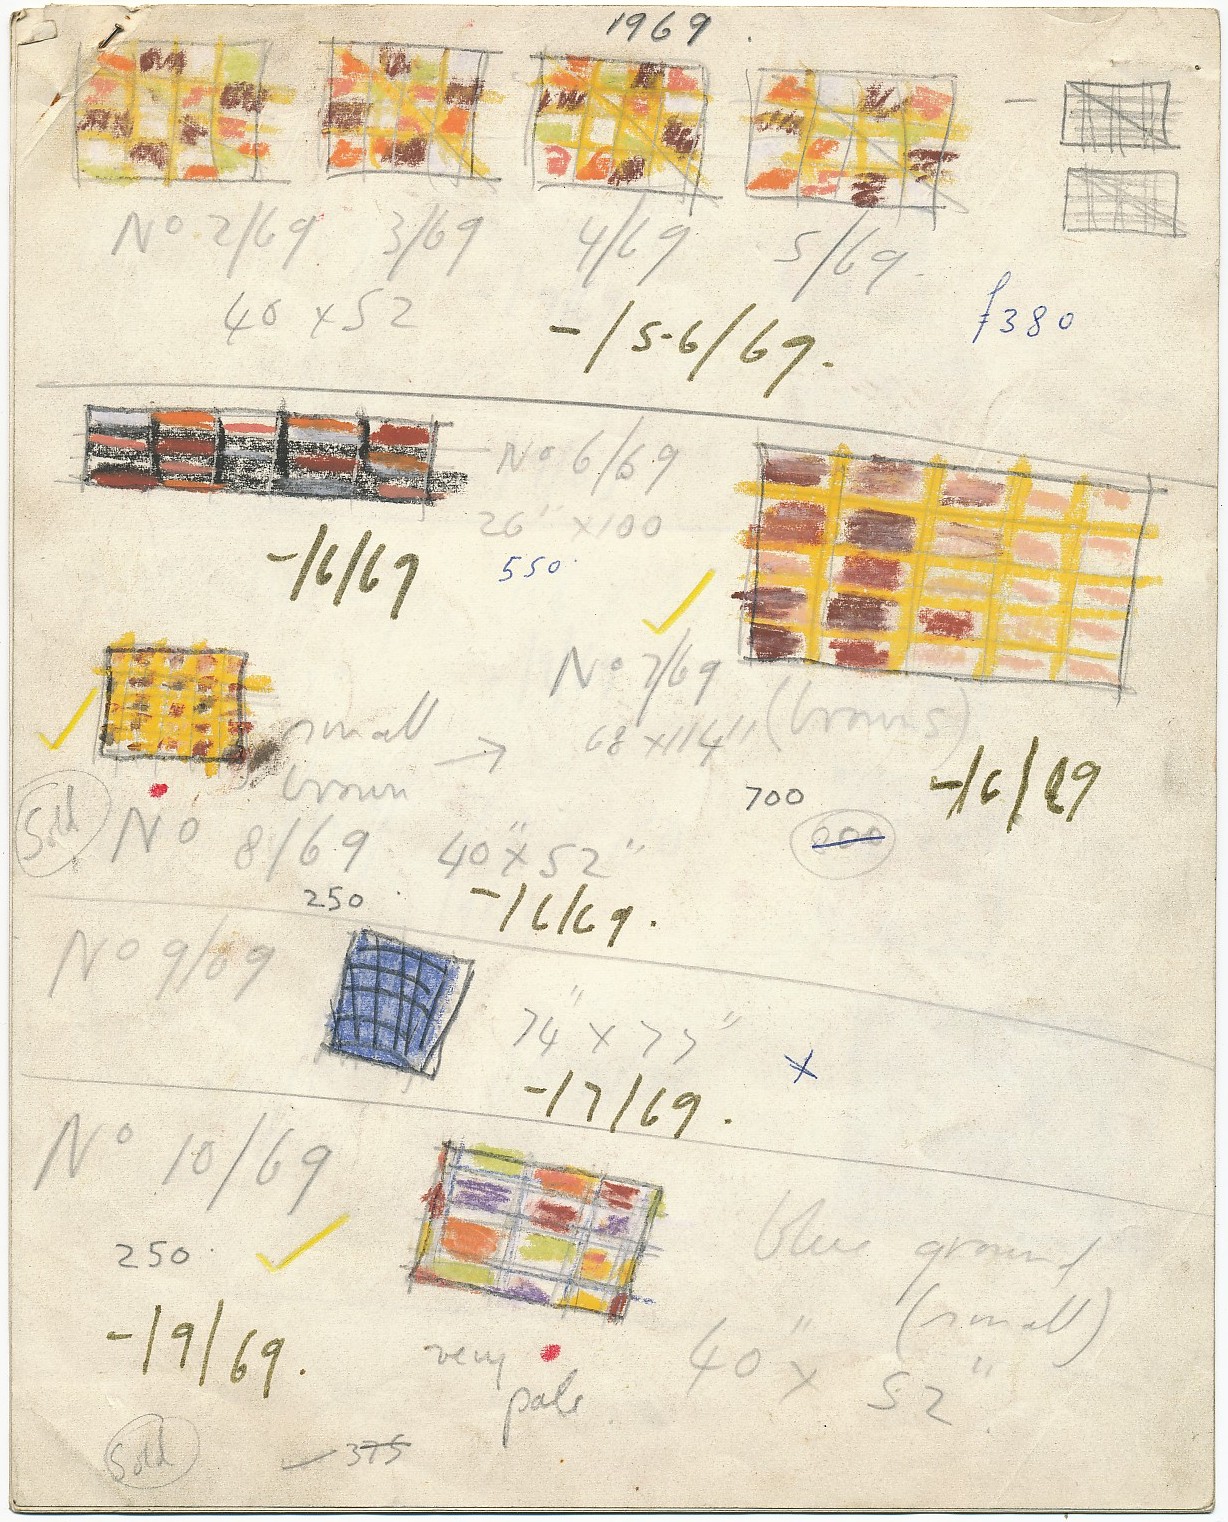 1969
No 2/69 3/69 4/69 5/69
40 x 52
-/5-6/69.
£380
No 6/69
26" x 100
-/6/69
550
No 7/69
68 x 114" (browns)
-/6/69
700
200
small
brown
Sold
No 8/69 40" x 52"
250
-/6/69.
No 9/69
74" x 77"
x
-/7/69.
No 10/69
250
blue ground
(small)
-/9/69.
very
pale
40" x 52"
Sold
375